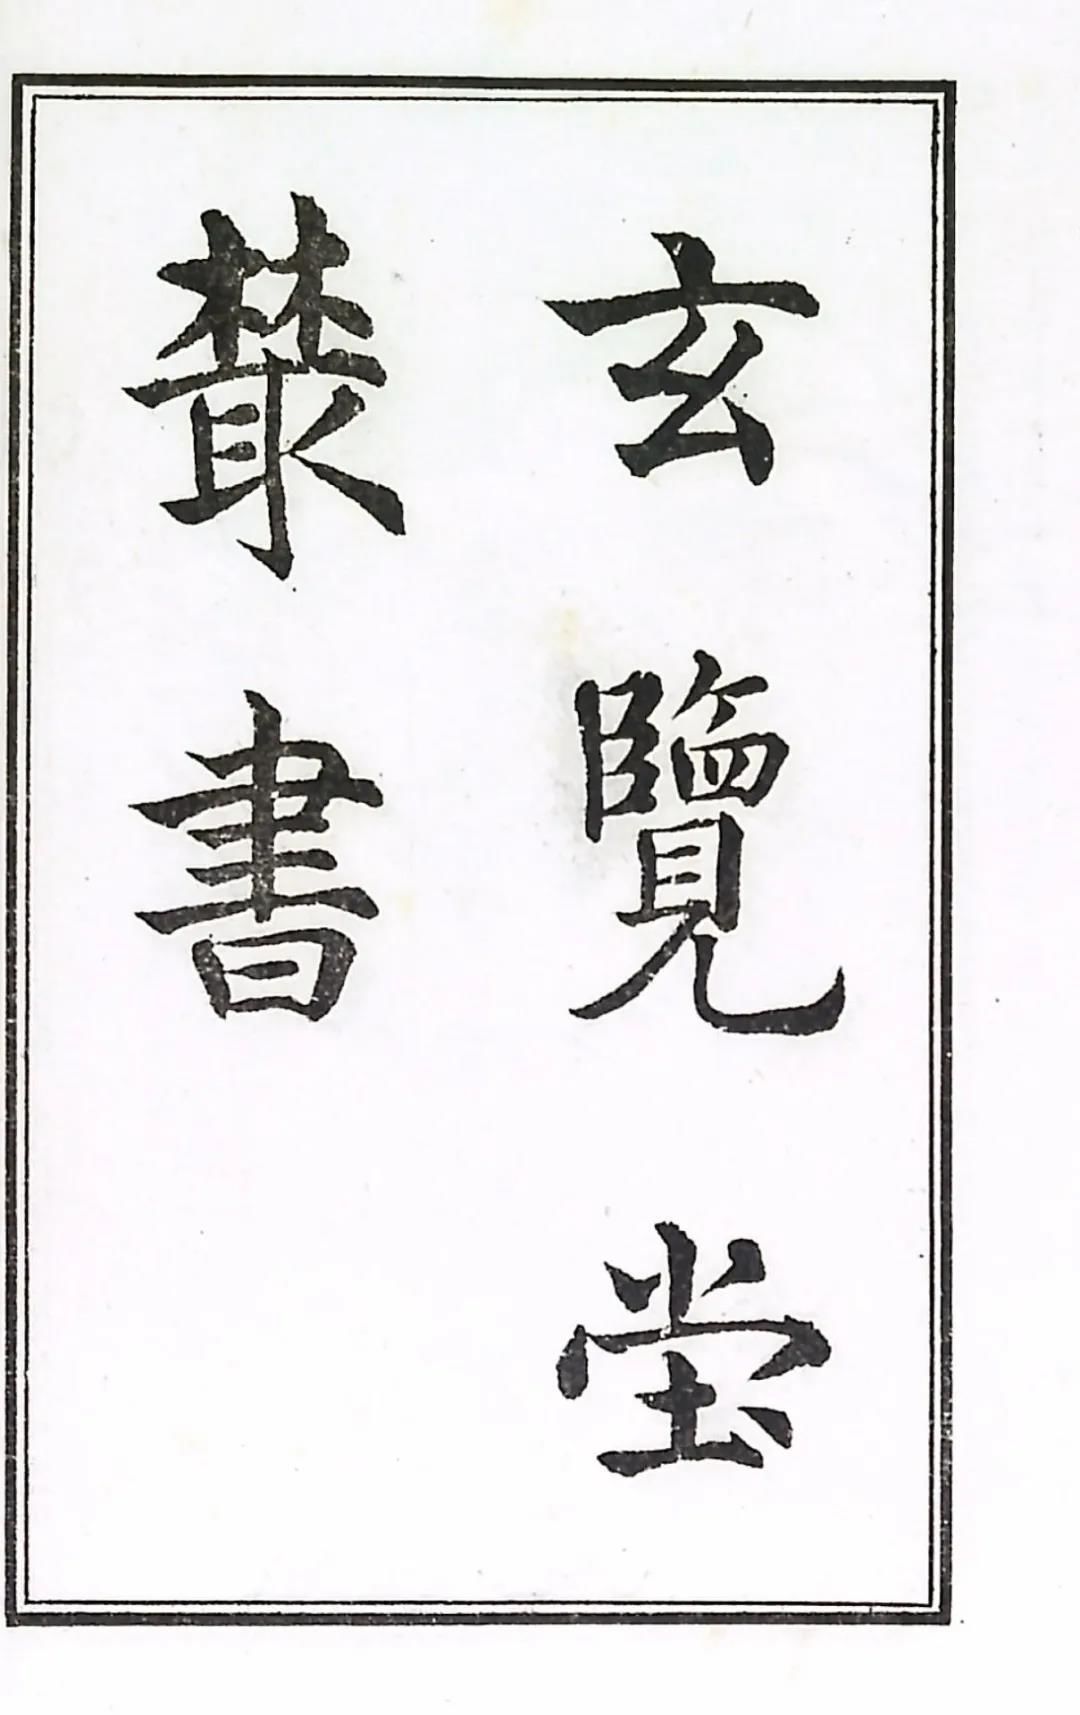 玄覽堂
叢書